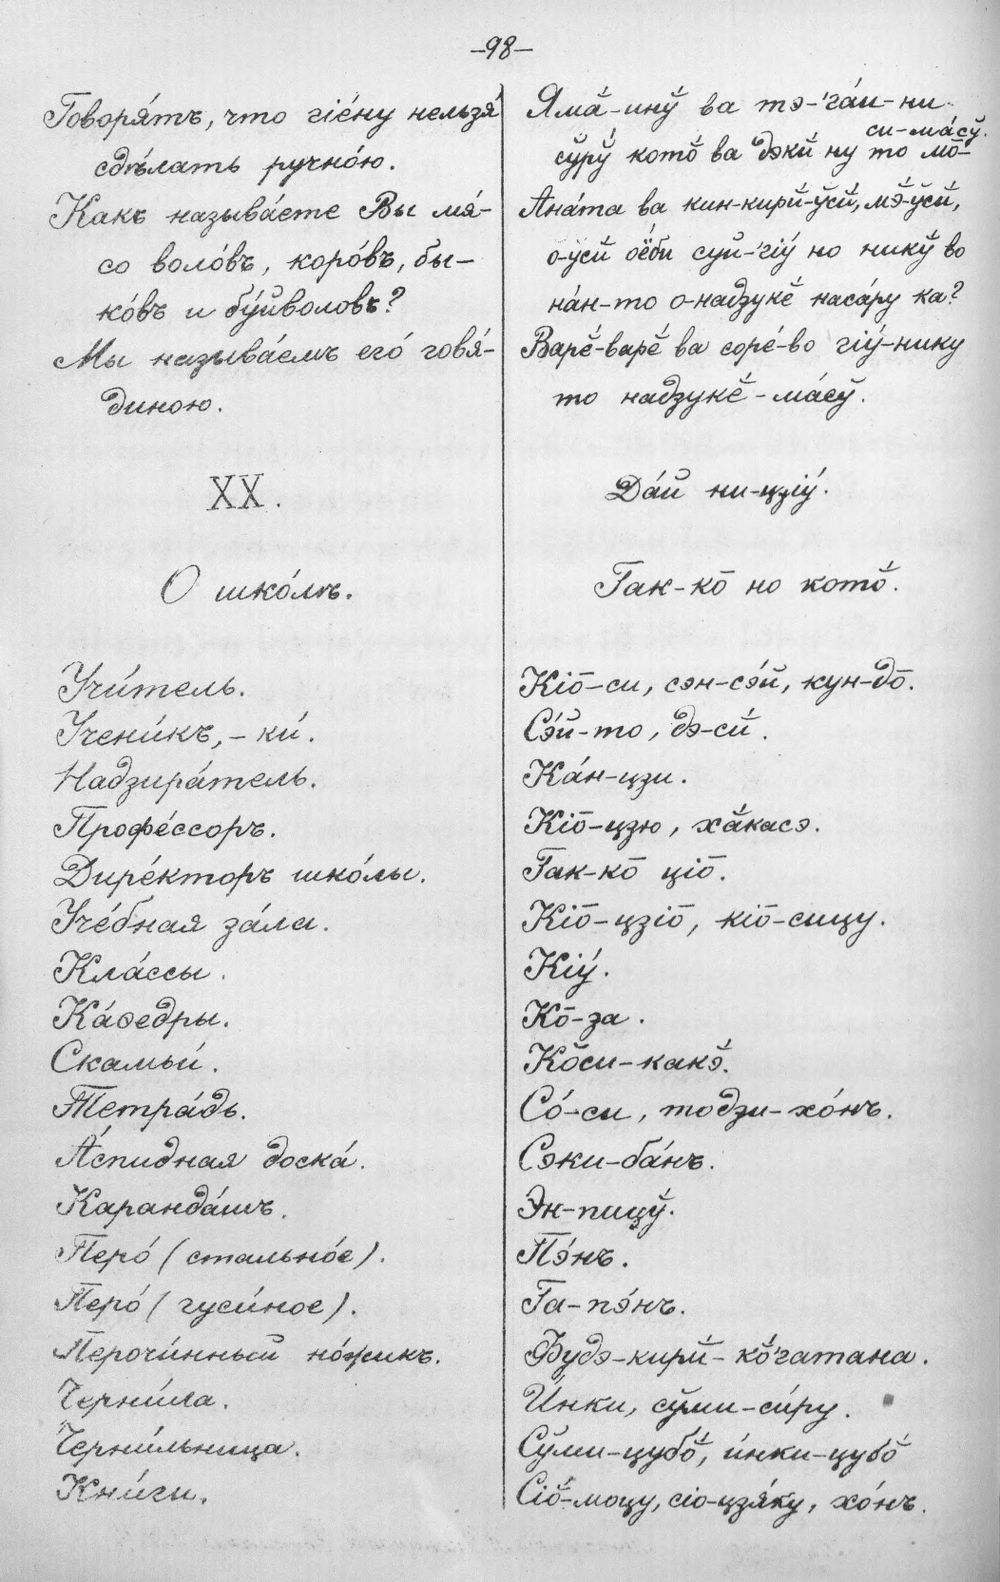 –98–
Говоря́тъ, что гіе́ну нельзя́
сдѣ́лать ручно́ю.
Какъ называ́ете Вы мя́-
со воло́въ, коро́въ, бы-
ко́въ и бу́йволовъ?
Мы называ́емъ его́ говя́-
диною.
XX.
О шко́лѣ.
Учи́тель.
Учени́къ, – ки́.
Надзира́тель.
Профе́ссоръ.
Дире́кторъ шко́лы.
Уче́бная за́ла.
Кла́ссы.
Ка́ѳедры.
Скамьи́.
Тетра́дь.
А́спидная доска́.
Каранда́шъ.
Перо́ (стально́е).
Перо́ (гуси́ное).
Перочи́нный но́жикъ.
Черни́ла.
Черни́льница.
Кни́ги.
Ямӑ-инў ва тэ-'га́и-ни
сўрў кото̆ ва дэкй ну то мо̄-
си-ма́сў.
Ана́та ва кин-кирй-ўсй, мэ̆-ўсй,
о-ўсй оё́би суй-'гіу́ но никў во
на́н-то о-надзукĕ наса́ру ка?
Варĕ-варĕ ва соре́-во гіу́-нику
то надзукĕ-ма́сў.
Да́й ни-цзіу́.
Гак-ко̄ но кото̆.
Кіо̄-си, сэн-сэ́й, кун-до̄.
Сэ́й-то, дэ-сй.
Ка́н-цзи.
Кіо̄-цзю, хӑкасэ.
Гак-ко̄ ціо̄.
Кіо̄-цзіо̄, кіо̄-сицу.
Кіу́.
Ко̄-за.
Ко̆си-какэ̆.
Со́-си, тодзи-хо́нъ.
Сэки-ба́нъ.
Эн-пицў.
Пэ́нъ.
Га-пэ́нъ.
Фудэ-кирй-ко̆'гатана.
И́нки, сўми-си́ру.
Сўми-цубо̆, и́нки-цубо̆
Сіо̆-моцу, сіо-цзя́ку, хо́нъ.